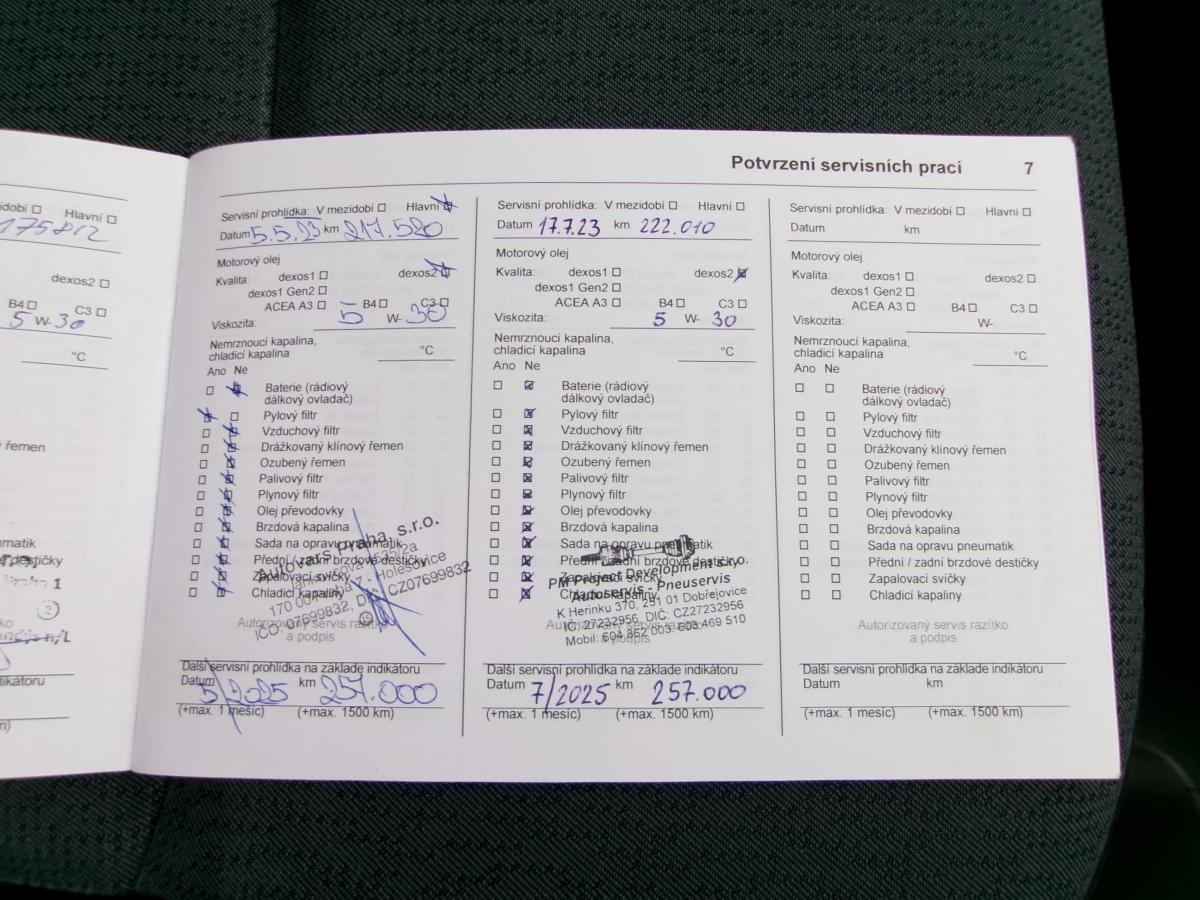 Potvrzení servisních prací 7
zidobí Hlavní
175812
dexos2
B4 C3
5 W- 30
°C
řemen
Servisní prohlídka: V mezidobí Hlavní
Datum 5.5.23 km 217.520
Motorový olej
Kvalita: dexos1 dexos2
dexos1 Gen2
ACEA A3 B4 C3
Viskozita: 5 W- 30
Nemrznoucí kapalina,
chladicí kapalina °C
Ano Ne
Baterie (rádiový
dálkový ovladač)
Pylový filtr
Vzduchový filtr
Drážkovaný klínový řemen
Ozubený řemen
Palivový filtr
Plynový filtr
Olej převodovky
Brzdová kapalina
Sada na opravu pneumatik
Přední / zadní brzdové destičky
Zapalovací svíčky
Chladicí kapaliny
Praha, s.r.o.
170 00 Praha 7 - Holešovice
IČO: 07699832, DIČ: CZ07699832
Autorizovaný servis razítko
a podpis
Další servisní prohlídka na základe indikátoru
Datum 5/2025 km 257.000
(+max. 1 mesíc) (+max. 1500 km)
Servisní prohlídka: V mezidobí Hlavní
Datum 17.7.23 km 222.010
Motorový olej
Kvalita: dexos1 dexos2
dexos1 Gen2
ACEA A3 B4 C3
Viskozita: 5 W- 30
Nemrznoucí kapalina,
chladicí kapalina °C
Ano Ne
Baterie (rádiový
dálkový ovladač)
Pylový filtr
Vzduchový filtr
Drážkovaný klínový řemen
Ozubený řemen
Palivový filtr
Plynový filtr
Olej převodovky
Brzdová kapalina
Sada na opravu pneumatik
Přední / zadní brzdové destičky
Zapalovací svíčky
Chladicí kapaliny
PM Project Development s.r.o.
Autoservis - Pneuservis
K Herinku 370, 251 01 Dobřejovice
IČ: 27232956, DIČ: CZ27232956
Mobil: 604 862 003, 603 469 510
Autorizovaný servis razítko
a podpis
Další servisní prohlídka na základe indikátoru
Datum 7/2025 km 257.000
(+max. 1 mesíc) (+max. 1500 km)
Servisní prohlídka: V mezidobí Hlavní
Datum km
Motorový olej
Kvalita: dexos1 dexos2
dexos1 Gen2
ACEA A3 B4 C3
Viskozita: W-
Nemrznoucí kapalina,
chladicí kapalina °C
Ano Ne
Baterie (rádiový
dálkový ovladač)
Pylový filtr
Vzduchový filtr
Drážkovaný klínový řemen
Ozubený řemen
Palivový filtr
Plynový filtr
Olej převodovky
Brzdová kapalina
Sada na opravu pneumatik
Přední / zadní brzdové destičky
Zapalovací svíčky
Chladicí kapaliny
Autorizovaný servis razítko
a podpis
Další servisní prohlídka na základe indikátoru
Datum km
(+max. 1 mesíc) (+max. 1500 km)